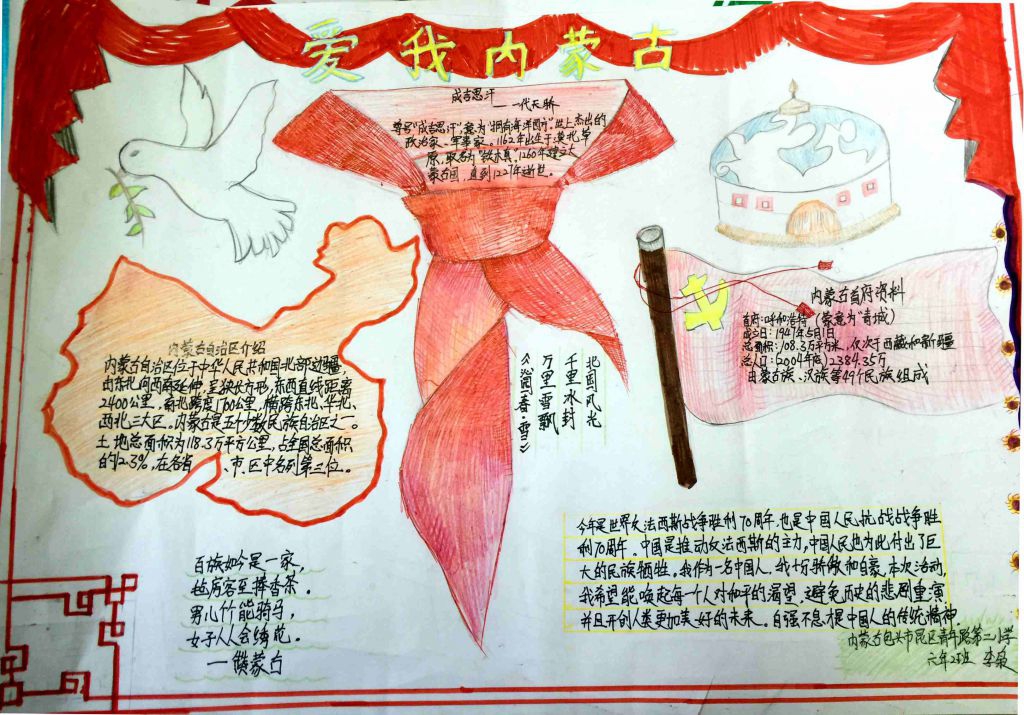 爱我内蒙古
成吉思汗
——一代天骄
尊号"成吉思汗",意为"拥有海洋四方"。世上杰出的
政治家、军事家。1162年出生于漠北草
原,取名为"铁木真"。1260年建立大
蒙古国,直到1227年逝世。
内蒙古自治区介绍
内蒙古自治区位于中华人民共和国北部边疆,
由东北向西南延伸,呈狭长方形,东西直线距离
2400公里,南北跨度1700公里,横跨东北、华北、
西北三大区。内蒙古是五个少数民族自治区之一。
土地总面积为118.3万平方公里,占全国总面积
的12.3%,在各省、市、区中名列第三位。
北国风光
千里冰封
万里雪飘
《沁园春·雪》
内蒙古首府资料
首府:呼和浩特(蒙意为青城)
成立日:1947年5月1日
总面积:108.3万平方米,仅次于西藏和新疆
总人口:(2004年底)2384.35万
由蒙古族、汉族等49个民族组成
百族如今是一家,
毡房客至捧香茶。
男儿个个能骑马,
女子人人会绣花。
一赞蒙古
今年是世界反法西斯战争胜利70周年,也是中国人民抗战战争胜
利70周年。中国是推动反法西斯的主力,中国人民也为此付出了巨
大的民族牺牲。我作为一名中国人,我十分骄傲和自豪。本次活动,
我希望能唤起每一个人对和平的渴望,避免历史的悲剧重演
并且开创人类更加美好的未来。自强不息,才是中国人的传统精神.
内蒙古包头市昆区青年路第二小学
六年2班 李